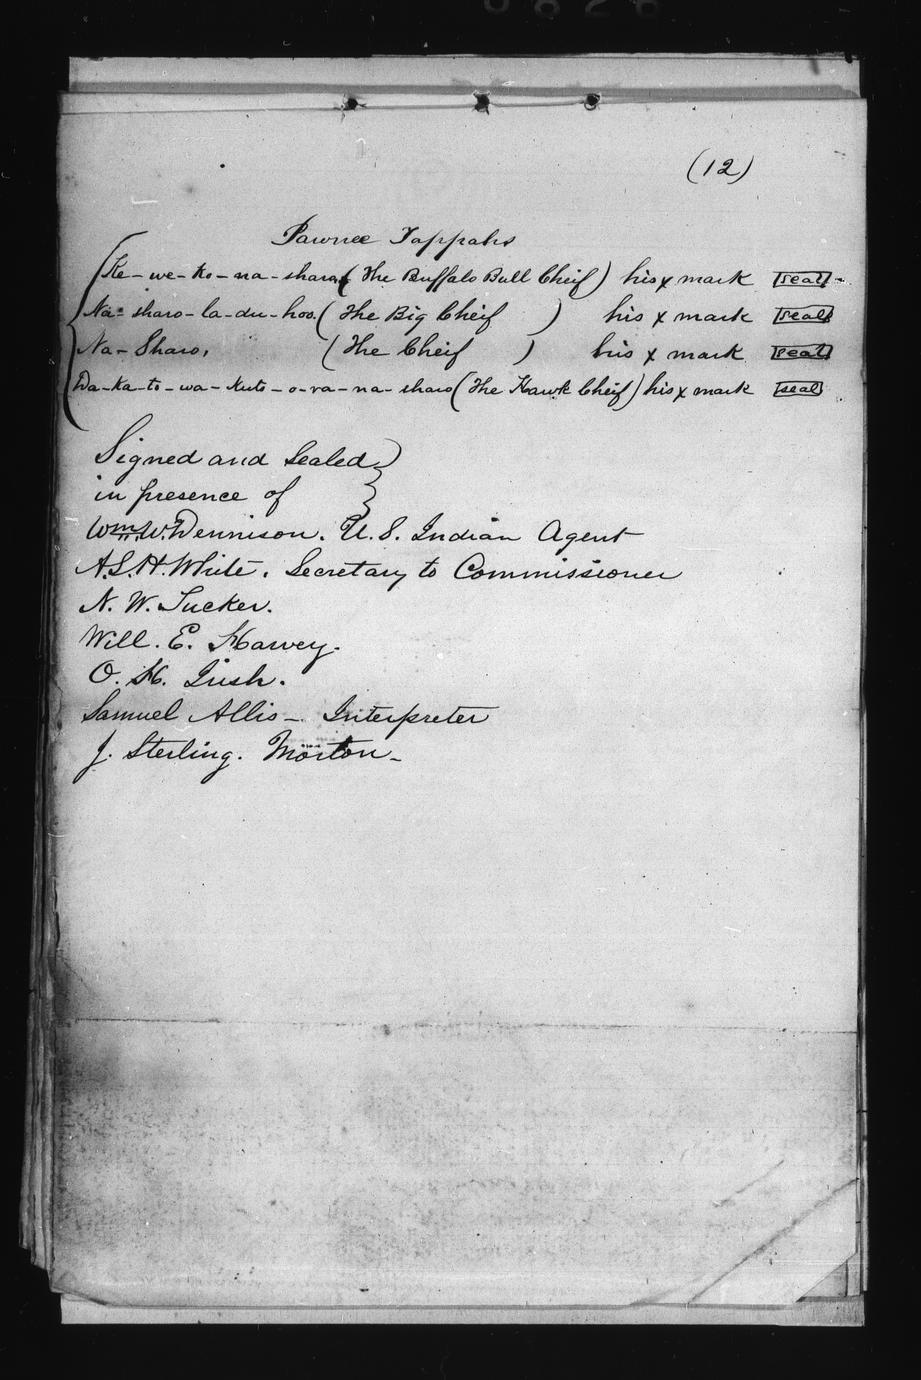 (12)
Pawnee Tappahs
Ke-we-ko-na-sharo (The Buffalo Bull Cheif) his x mark seal
Na-sharo-la-du-hoo. (The Big Cheif ) his x mark seal
Na-Sharo, (The Cheif ) his x mark seal
Da-ka-to-wa-kuto-o-ra-na-sharo (The Hawk Cheif) his x mark seal
Signed and Sealed
in presence of
Wm. W. Dennison. U. S. Indian Agent
A. S. H. White. Secretary to Commissioner
N. W. Tucker.
Will. E. Harvey.
O. H. Irish.
Samuel Allis - Interpreter
J. Sterling. Morton -